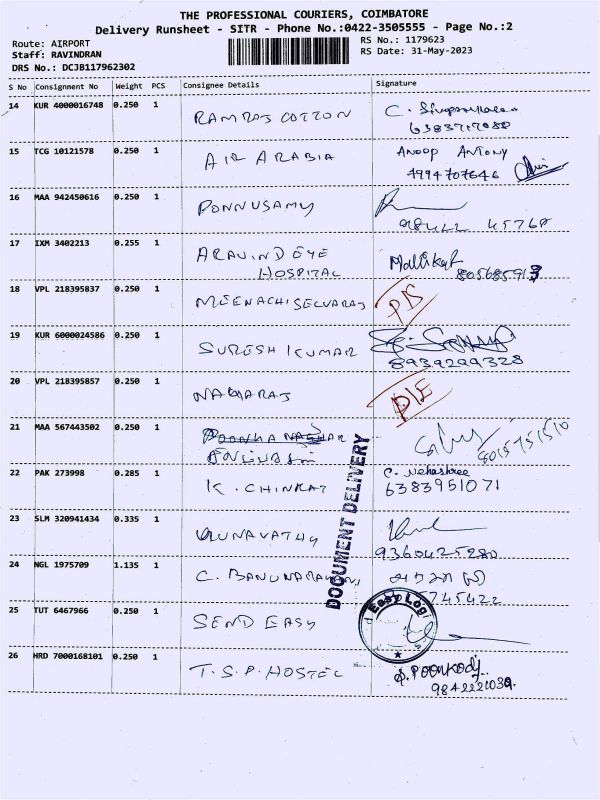 THE PROFESSIONAL COURIERS, COIMBATORE
Delivery Runsheet - SITR - Phone No.:0422-3505555 - Page No.:2
Route: AIRPORT
RS No.: 1179623
Staff: RAVINDRAN
RS Date: 31-May-2023
DRS No.: DCJB117962302
S No Consignment No Weight PCS Consignee Details Signature
14 KUR 4000016748 0.250 1 RAMRAJ COTTON C.
15 TCG 10121578 0.250 1 AIR ARABIA ANOOP ANTONY
4994707646
16 MAA 942450616 0.250 1 PONNUSAMY
98422 45768
17 IXM 3402213 0.255 1 ARAVIND EYE
HOSPITAL
18 VPL 218395837 0.250 1 MEENACHISELVARAJ
19 KUR 6000024586 0.250 1 SURESH KUMAR
8939299328
20 VPL 218395857 0.250 1 NAGARAJ
21 MAA 567443502 0.250 1
8015751510
22 PAK 273998 0.285 1 K. CHINRAJ C. Nehashree
6383951071
23 SLM 320941434 0.335 1 GUNAVATHY
9360425280
24 NGL 1975709 1.135 1 C.
745422
25 TUT 6467966 0.250 1 SEND EASY
26 HRD 7000168101 0.250 1 T.S.P. HOSTEL S. POONKODI
DOCUMENT DELIVERY
Easy Logi